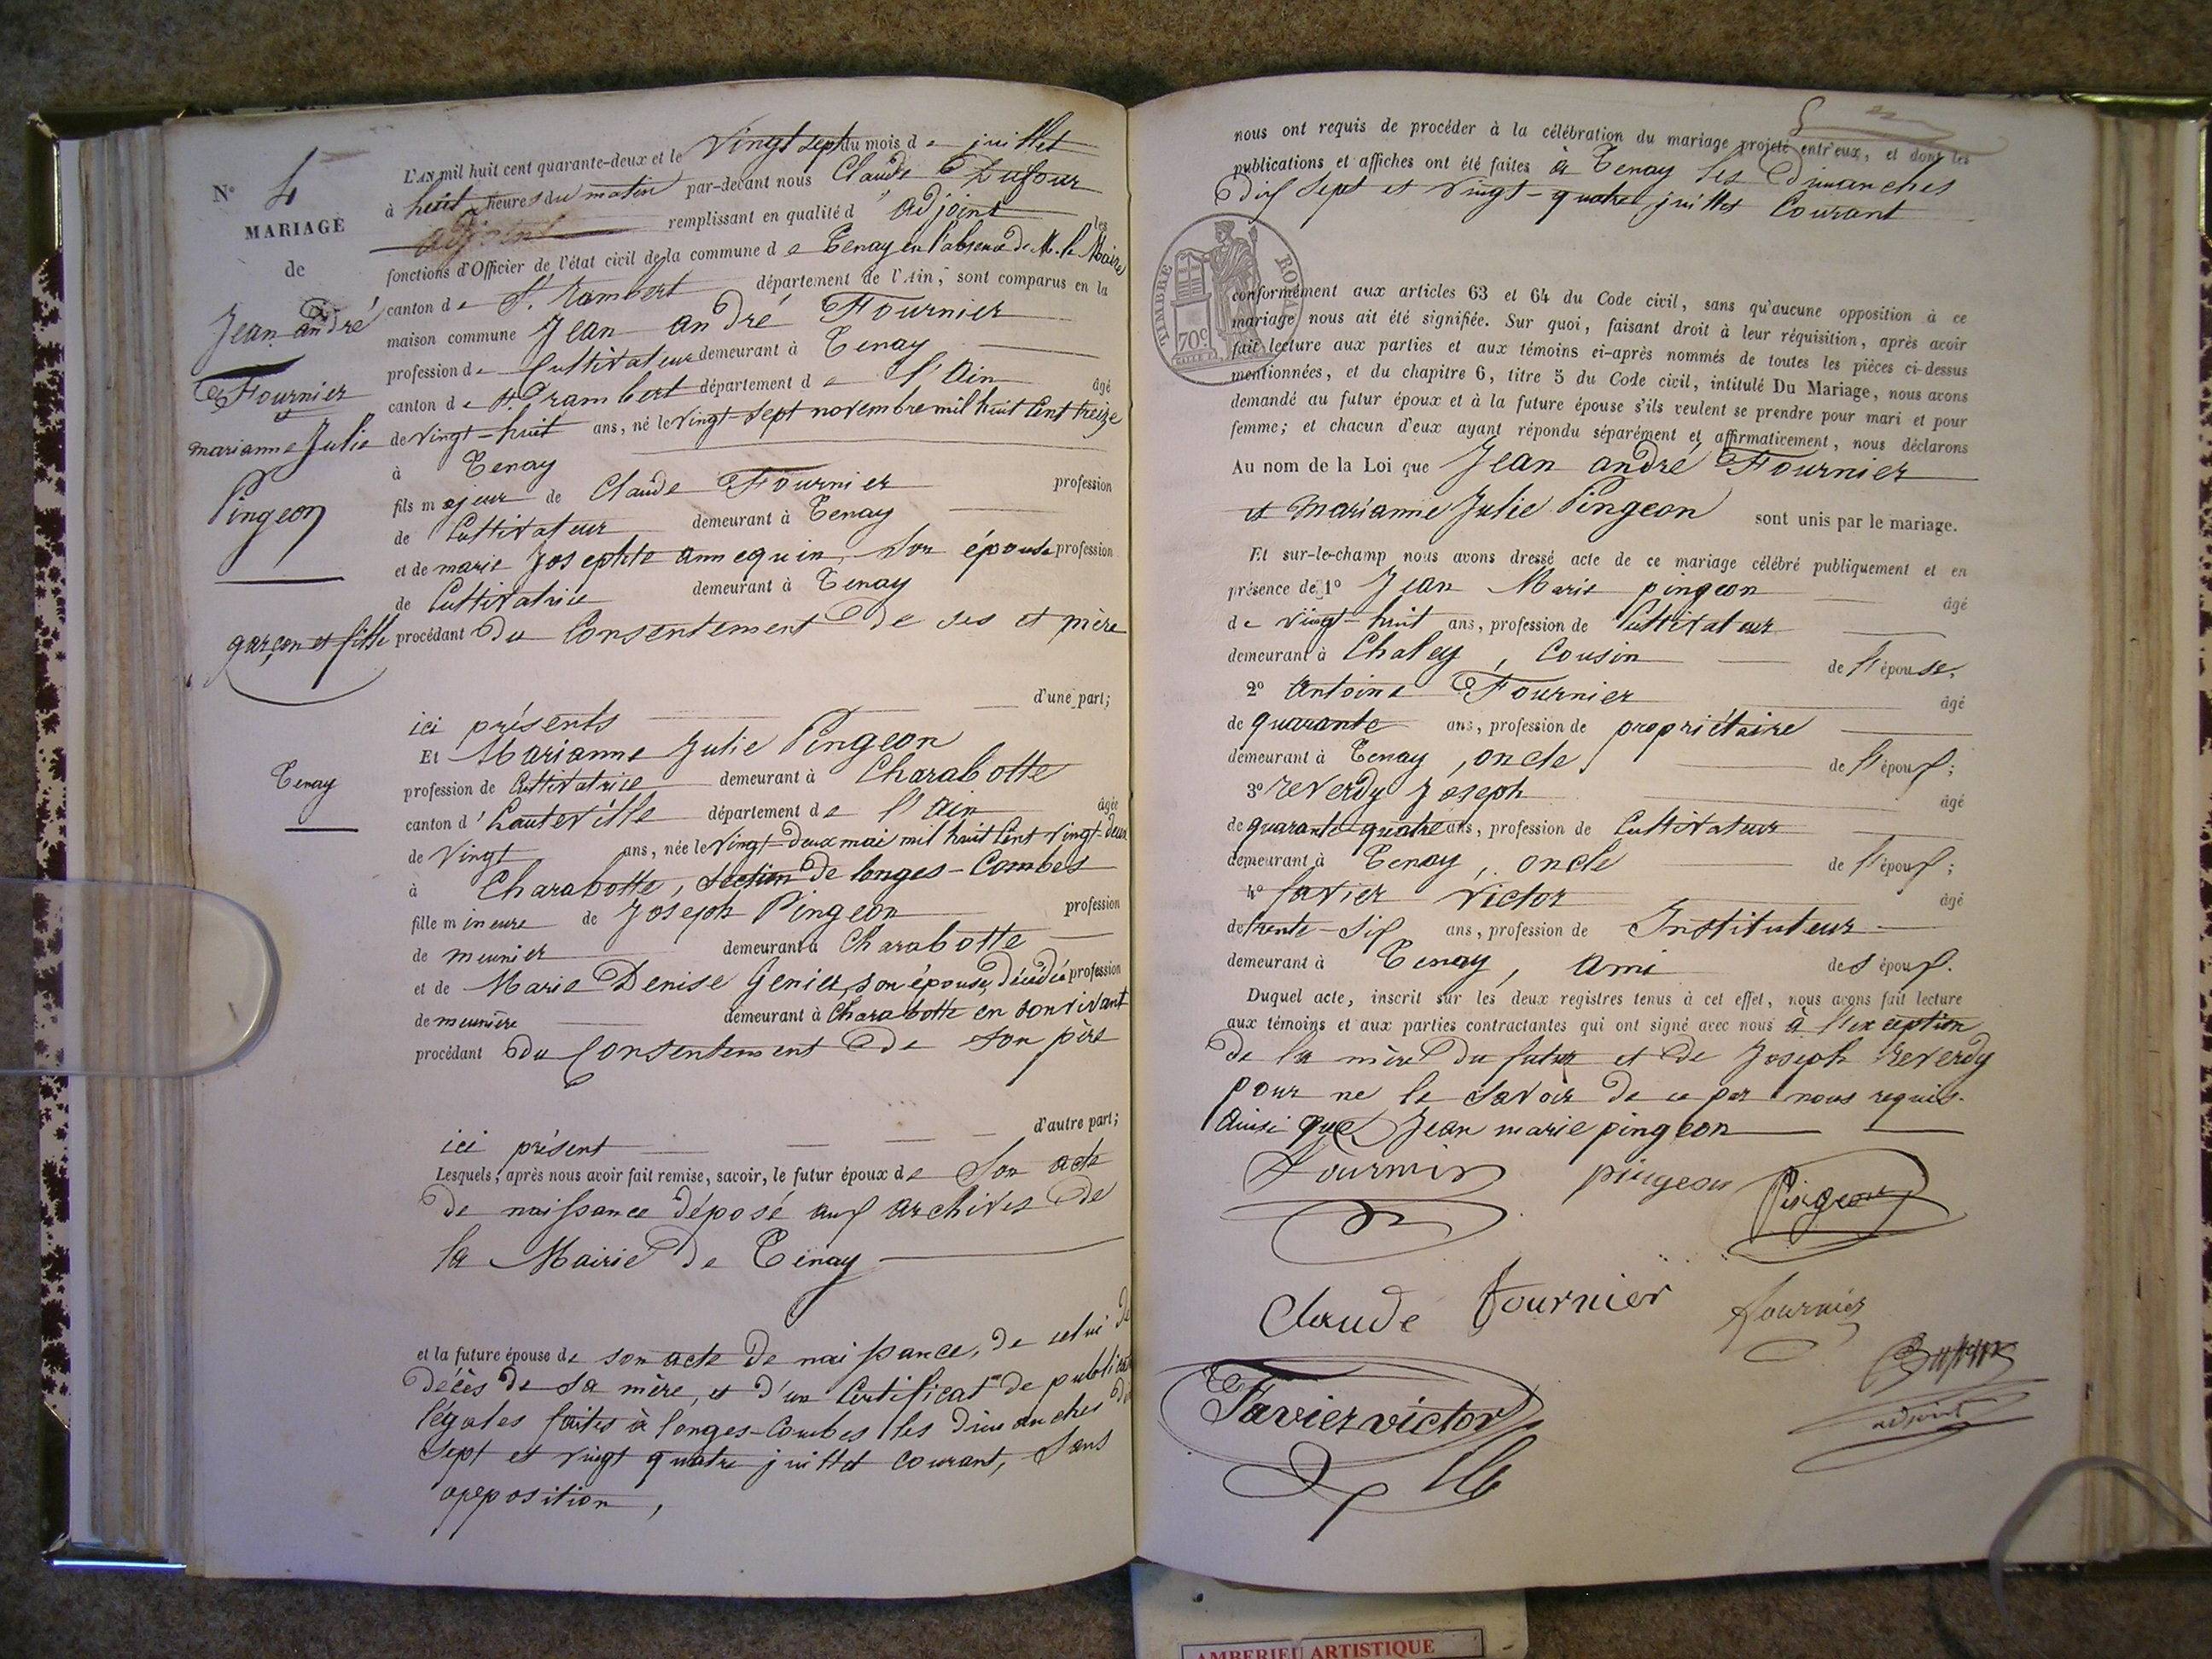 N° 4
MARIAGE
de
Jean andré
Fournier
et
marianne Julie
Pingeon
garçon et fille
Tenay
L'AN mil huit cent quarante-deux et le Vingt sept du mois de juillet
à huit heures du matin par-devant nous Claude Dufour
adjoint remplissant en qualité d'adjoint les
fonctions d'Officier de l'état civil de la commune de Tenay en l'absence de M. le Maire
canton de St. Rambert département de l'Ain, sont comparus en la
maison commune Jean andré Fournier
profession de Cultivateur demeurant à Tenay
canton de St. rambert département de l'Ain âgé
de vingt-huit ans, né le vingt-sept novembre mil huit cent treize
à Tenay
fils majeur de Claude Fournier profession
de Cultivateur demeurant à Tenay
et de marie Josephte annequin, son épouse profession
de Cultivatrice demeurant à Tenay
procédant du Consentement de ses et mère
d'une part;
ici présents
Et Marianne Julie Pingeon
profession de Cultivatrice demeurant à Charabotte
canton d'hauteville département de l'Ain âgée
de Vingt ans, née le Vingt-deux mai mil huit cent vingt-deux
à Charabotte, section de longes-Combes
fille mineure de Joseph Pingeon profession
de meunier demeurant à Charabotte
et de Marie Denise Genier, son épouse, décédée profession
de meunière demeurant à Charabotte en son vivant
procédant du Consentement de son père
d'autre part;
ici présent
Lesquels, après nous avoir fait remise, savoir, le futur époux de Son acte
de naissance déposé aux archives de
la Mairie de Tenay
et la future épouse de son acte de naissance, de celui de
décès de sa mère, et d'un Certificat de
légales faites à longes-Combes les dimanches
sept et vingt quatre juillet courant, sans
opposition,
nous ont requis de procéder à la célébration du mariage projeté entr'eux, et dont les
publications et affiches ont été faites à Tenay les Dimanches
dix sept et vingt-quatre juillet Courant
TIMBRE ROYAL
70c
conformément aux articles 63 et 64 du Code civil, sans qu'aucune opposition à ce
mariage nous ait été signifiée. Sur quoi, faisant droit à leur réquisition, après avoir
fait lecture aux parties et aux témoins ci-après nommés de toutes les pièces ci-dessus
mentionnées, et du chapitre 6, titre 5 du Code civil, intitulé Du Mariage, nous avons
demandé au futur époux et à la future épouse s'ils veulent se prendre pour mari et pour
femme; et chacun d'eux ayant répondu séparément et affirmativement, nous déclarons
Au nom de la Loi que Jean andré Fournier
et Marianne Julie Pingeon sont unis par le mariage.
Et sur-le-champ nous avons dressé acte de ce mariage célébré publiquement et en
présence de 1° Jean Marie pingeon âgé
de vingt-huit ans, profession de Cultivateur
demeurant à Chaley, Cousin de l'épouse.
2° Antoine Fournier âgé
de quarante ans, profession de propriétaire
demeurant à Tenay, oncle de l'époux;
3° reverdy Joseph âgé
de quarante-quatre ans, profession de Cultivateur
demeurant à Tenay, oncle de l'époux;
4° favier Victor âgé
de trente-six ans, profession de Instituteur
demeurant à Tenay, ami des époux.
Duquel acte, inscrit sur les deux registres tenus à cet effet, nous avons fait lecture
aux témoins et aux parties contractantes qui ont signé avec nous à l'exception
de la mère du futur et de Joseph Reverdy
pour ne le savoir de ce par nous requis.
ainsi que Jean marie pingeon
Fournier pingeon Pingeon
Claude fournier fournier
Favier victor
adjoint
AMBERIEU ARTISTIQUE